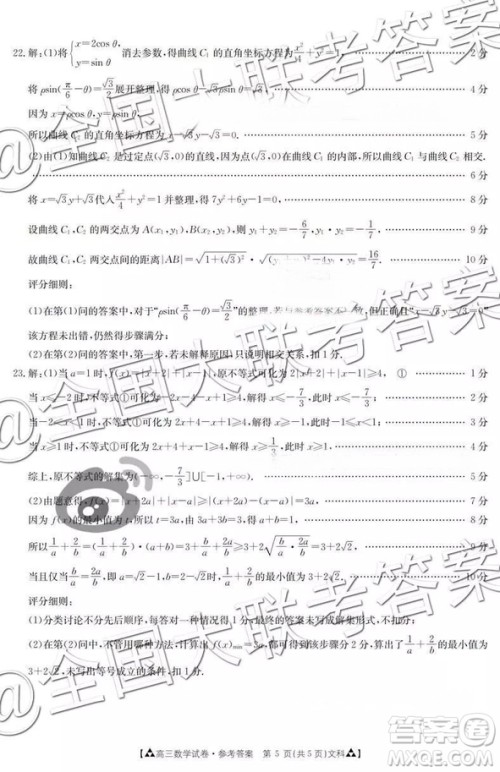 22.解:(1)将{x=2cosθ, y=sinθ 消去参数,得曲线C₁的直角坐标方程为x²/4+y²=1. 2分
将ρsin(π/6-θ)=√3/2展开整理,得ρcosθ-√3ρsinθ=√3. 4分
因为x=ρcosθ,y=ρsinθ,
所以曲线C₂的直角坐标方程为x-√3y-√3=0. 5分
(2)由(1)知曲线C₂是过定点(√3,0)的直线,因为点(√3,0)在曲线C₁的内部,所以曲线C₁与曲线C₂相交.
6分
将x=√3y+√3代入x²/4+y²=1并整理,得7y²+6y-1=0, 7分
设曲线C₁,C₂的两交点为A(x₁,y₁),B(x₂,y₂),则y₁+y₂=-6/7,y₁y₂=-1/7, 8分
故曲线C₁,C₂两交点间的距离|AB|=√(1+(√3)²)·=16/7. 10分
评分细则:
(1)在第(1)问的答案中,对于“ρsin(π/6-θ)=√3/2”的整理,若与参考答案不,但正确,只要
该方程未出错,仍然得步骤满分;
(2)在第(2)问的答案中,第一步,若未解释原因,只说明相交关系,扣1分.
23.解:(1)当a=1时,f(x)=|x+2|+|x-1|,故f(x)+x≥4可化为|x+2|+|x-1|+x≥4, ① 1分
当x≤-2时,不等式①可化为 2分
当-2<x<1时,不等式①可化为 3分
当x≥1时,不等式①可化为2x+1+x≥4,解得x≥1. 4分
综上,原不等式的解集为(-∞,-7/3]∪[-1,+∞). 5分
(2)由题意,得f(x)=|x+2a|+|x-a|≥|(x+2a)-(x-a)|=3a, 7分
因为f(x)的最小值为t=3a,由t+3b=3,得a+b=1, 8分
所以1/a+2/b=(a+b)·(1/a+2/b)=3+b/a+2a/b≥3+2√(b/a·2a/b)=3+2√2, 9分
当且仅当b/a=2a/b,即a=√2-1,b=2-√2时,1/a+2/b的最小值为3+2√2. 10分
评分细则:
(1)分类讨论不分先后顺序,每正确一种情况得1分,最终的答案未写成解集形式,不扣分;
(2)在第(2)问中,不管用哪种方法,只要正确计算出f(x)=3a,都可以得到该步骤分2分,算出了1/a+2/b的最小值为
3+2√2,未写出等号成立的条件,扣1分.
高三数学试卷·参考答案 第5页(共5页)文科
@全国大联考答案